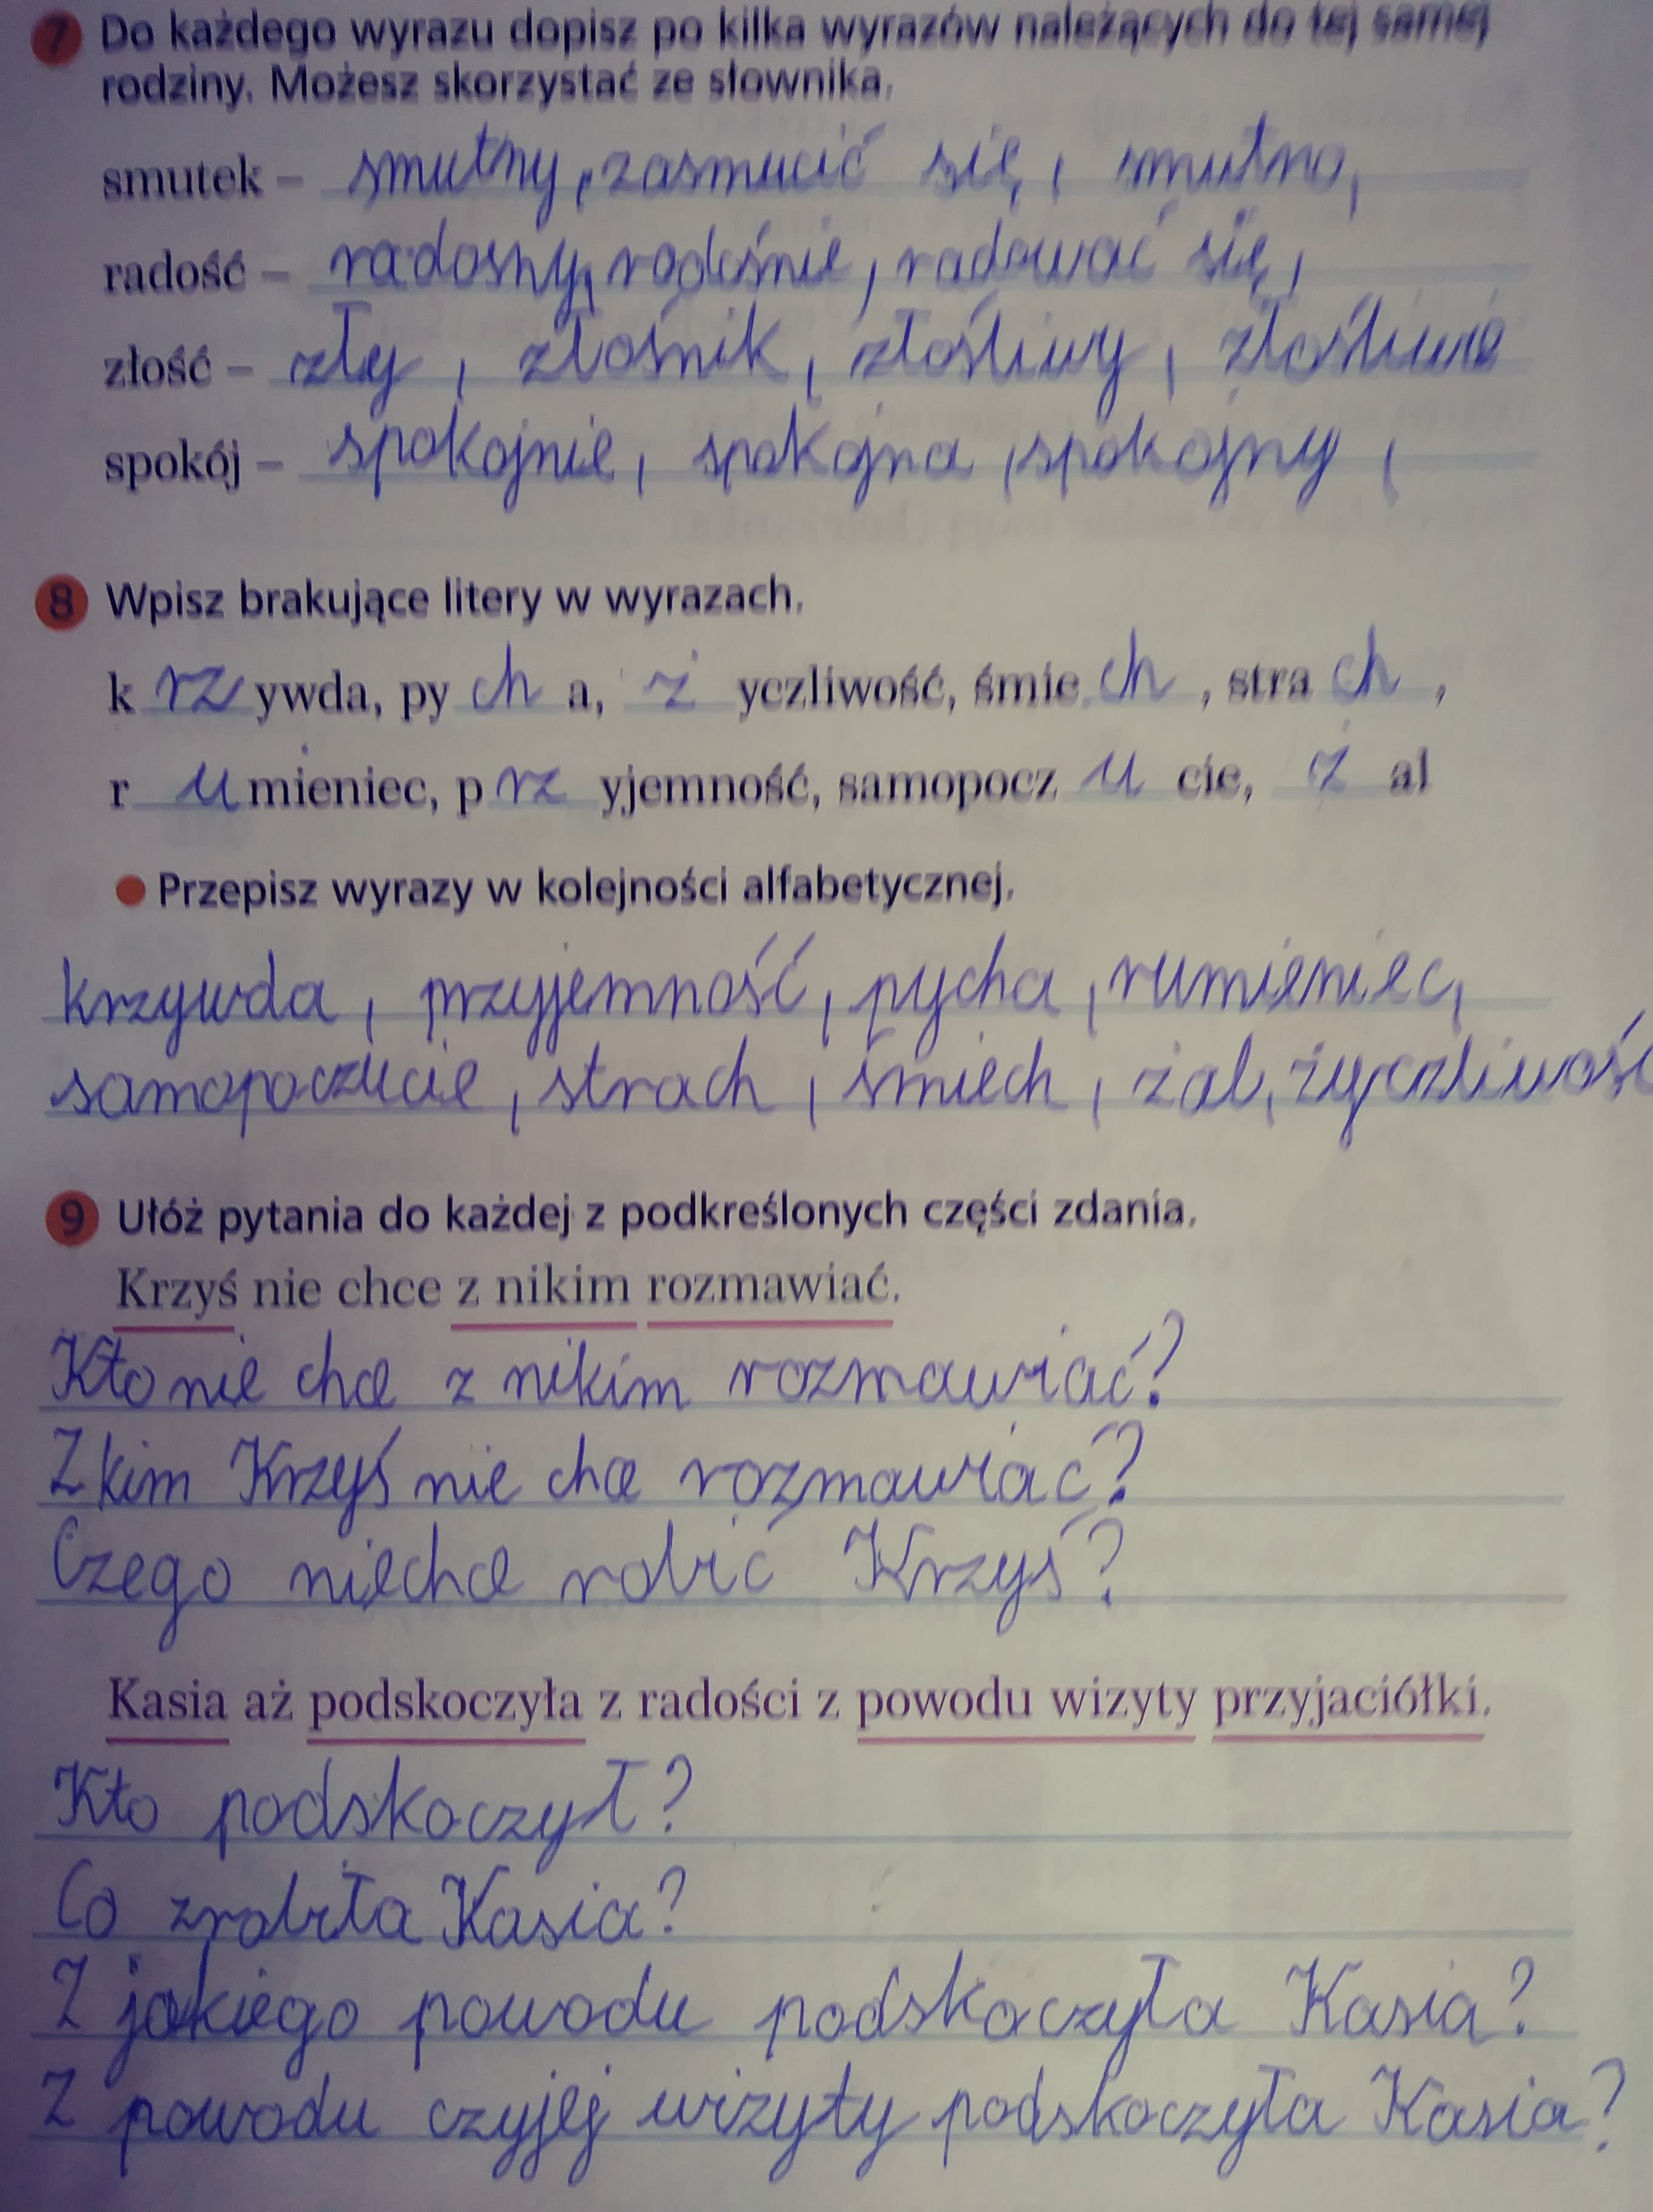 7 Do każdego wyrazu dopisz po kilka wyrazów należących do tej samej
rodziny. Możesz skorzystać ze słownika.
smutek – smutny, zasmucić się, smutno,
radość – radosny, radośnie, radować się,
złość – zły, złośnik, złośliwy, złośliwie
spokój – spokojnie, spokojna, spokojny,
8 Wpisz brakujące litery w wyrazach.
k rz ywda, py ch a, ż yczliwość, śmie ch, stra ch,
r u mieniec, p rz yjemność, samopocz u cie, ż al
• Przepisz wyrazy w kolejności alfabetycznej.
krzywda, przyjemność, pycha, rumieniec,
samopoczucie, strach, śmiech, żal, życzliwość
9 Ułóż pytania do każdej z podkreślonych części zdania.
Krzyś nie chce z nikim rozmawiać.
Kto nie chce z nikim rozmawiać?
Z kim Krzyś nie chce rozmawiać?
Czego niechce robić Krzyś?
Kasia aż podskoczyła z radości z powodu wizyty przyjaciółki.
Kto podskoczył?
Co zrobiła Kasia?
Z jakiego powodu podskoczyła Kasia?
Z powodu czyjej wizyty podskoczyła Kasia?